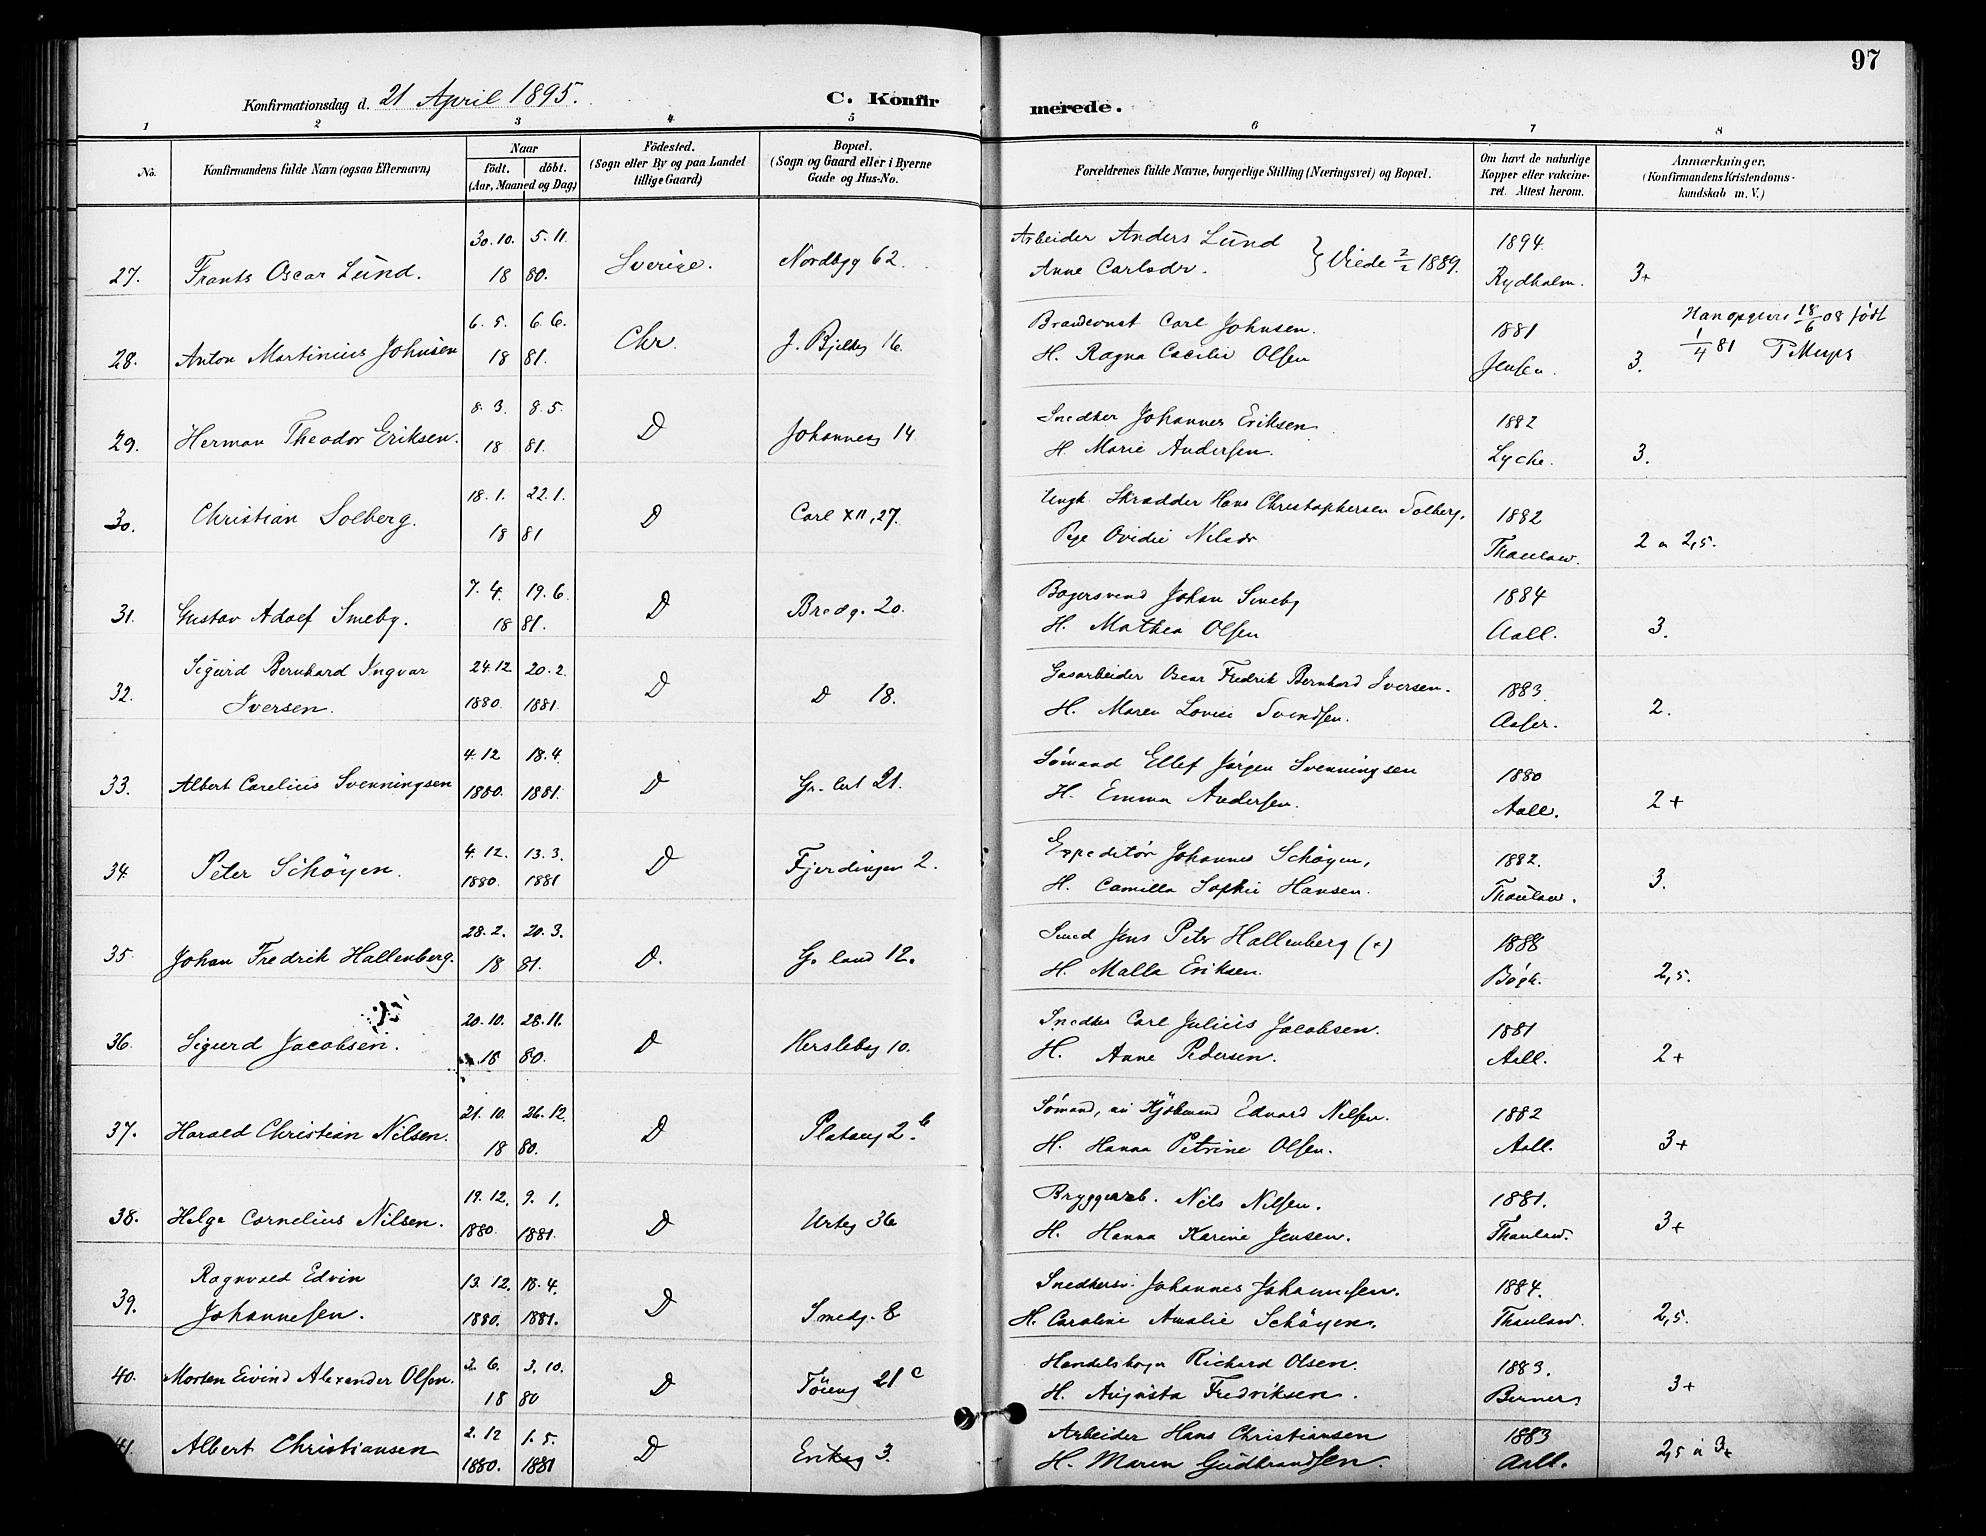 97
Konfirmationsdag d. 21 April 1895. C. Konfirmerede.
1 2 3 4 5 6 7 8
No.
Konfirmandens fulde Navn (ogsaa Efternavn)
Naar
födt. döbt.
(Aar, Maaned og Dag)
Födested.
(Sogn eller By og paa Landet
tillige Gaard)
Bopæl.
(Sogn og Gaard eller i Byerne
Gade og Hus-No.
Forældrenes fulde Navne, borgerlige Stilling (Næringsvei) og Bopæl.
Om havt de naturlige
Kopper eller vakcine-
ret. Attest herom.
Anmærkninger.
(Konfirmandens Kristendoms-
kundskab m. V.)
30.10. 5.11. Arbeider Anders Lund 1894.
27. Frants Oscar Lund. 18 80. Sverige. Nordbyg 62. Anne Carlsdr. } Viede 2/2 1889. Rydholm. 3+
6.5. 6.6. Carl Johnsen. 1881 Han opgives 18/6 08 født
28. Anton Martinius Johnsen 18 81. Chr. J. Bjelkes 16. H. Ragna Cecilie Olsen Jensen. 3. 1/4 81
8.3. 8.5. Snedker Johannes Eriksen 1882
29. Herman Theodor Eriksen. 18 81. D Johannesg 14 H. Marie Andersen. Lyche. 3.
18.1. 22.1. Ungk. Skrædder Hans Christophersen Solberg, 1882
30. Christian Solberg. 18 81 D Carl XII, 27. Pige Ovidie Nilsdr Thaulow. 2 a 2,5.
7.4. 19.6. Bagersvend Johan Smeby 1884
31. Gustav Adolf Smeby. 18 81. D Bredg. 20. H. Mathea Olsen Aall. 3.
Sigurd Bernhard Ingvar 24.12 20.2. Gasarbeider Oscar Fredrik Bernhard Iversen. 1883.
32. Iversen. 1880. 1881. D D 18. H. Maren Lovise Svendsen. 2.
4.12 18.4. Sømand Ellef Jørgen Svenningsen 1880
33. Albert Carelius Svenningsen 1880. 1881. D 21. H. Emma Andersen. Aall. 2+
4.12. 13.3. Expeditør Johannes Schøyen, 1882.
34. Peter Schöyen. 1880. 1881 D Fjerdingen 2. H. Camilla Sophie Hansen. Thaulow. 3.
28.2. 20.3. Smed Jens Peter Hallenberg (+) 1888
35. Johan Fredrik Hallenberg. 18 81. D. Gr. land 12. H. Malla Eriksen. Bögh. 2,5.
20.10. 28.11. Snedker Carl Julius Jacobsen. 1881
36. Sigurd Jacobsen. 18 80. D Herslebsg 10. H. Anne Pedersen. Aall. 2+
21.10. 26.12. Sømand, nu Kjøbmand Edvard Nilsen. 1882
37. Harald Christian Nilsen. 18 80. D Platoug 2.b H. Hanna Petrine Olsen. Aall. 3+
19.12. 9.1. Bryggerarb. Nils Nilsen. 1881.
38. Helge Cornelius Nilsen. 1880. 1881. D Urteg 36 H. Hanna Karine Jensen. Thaulow. 3+
Ragnvald Edvin 13.12. 18.4. Snedkersv. Johannes Johannesen. 1884.
39. Johannesen. 1880. 1881. D Smedg. 8 H. Caroline Amalie Schøyen. Thaulow. 2,5.
2.6. 3.10. Handelsbager Richard Olsen. 1883.
40. Morten Eivind Alexander Olsen. 18 80 D Töieng 21c H. Augusta Fredriksen. Berner. 3+
2.12 1.5. Arbeider Hans Christiansen 1883
41. Albert Christiansen 1880. 1881 D Eriksg 3. H. Maren Gudbrandsen. Aall. 2,5 a 3+